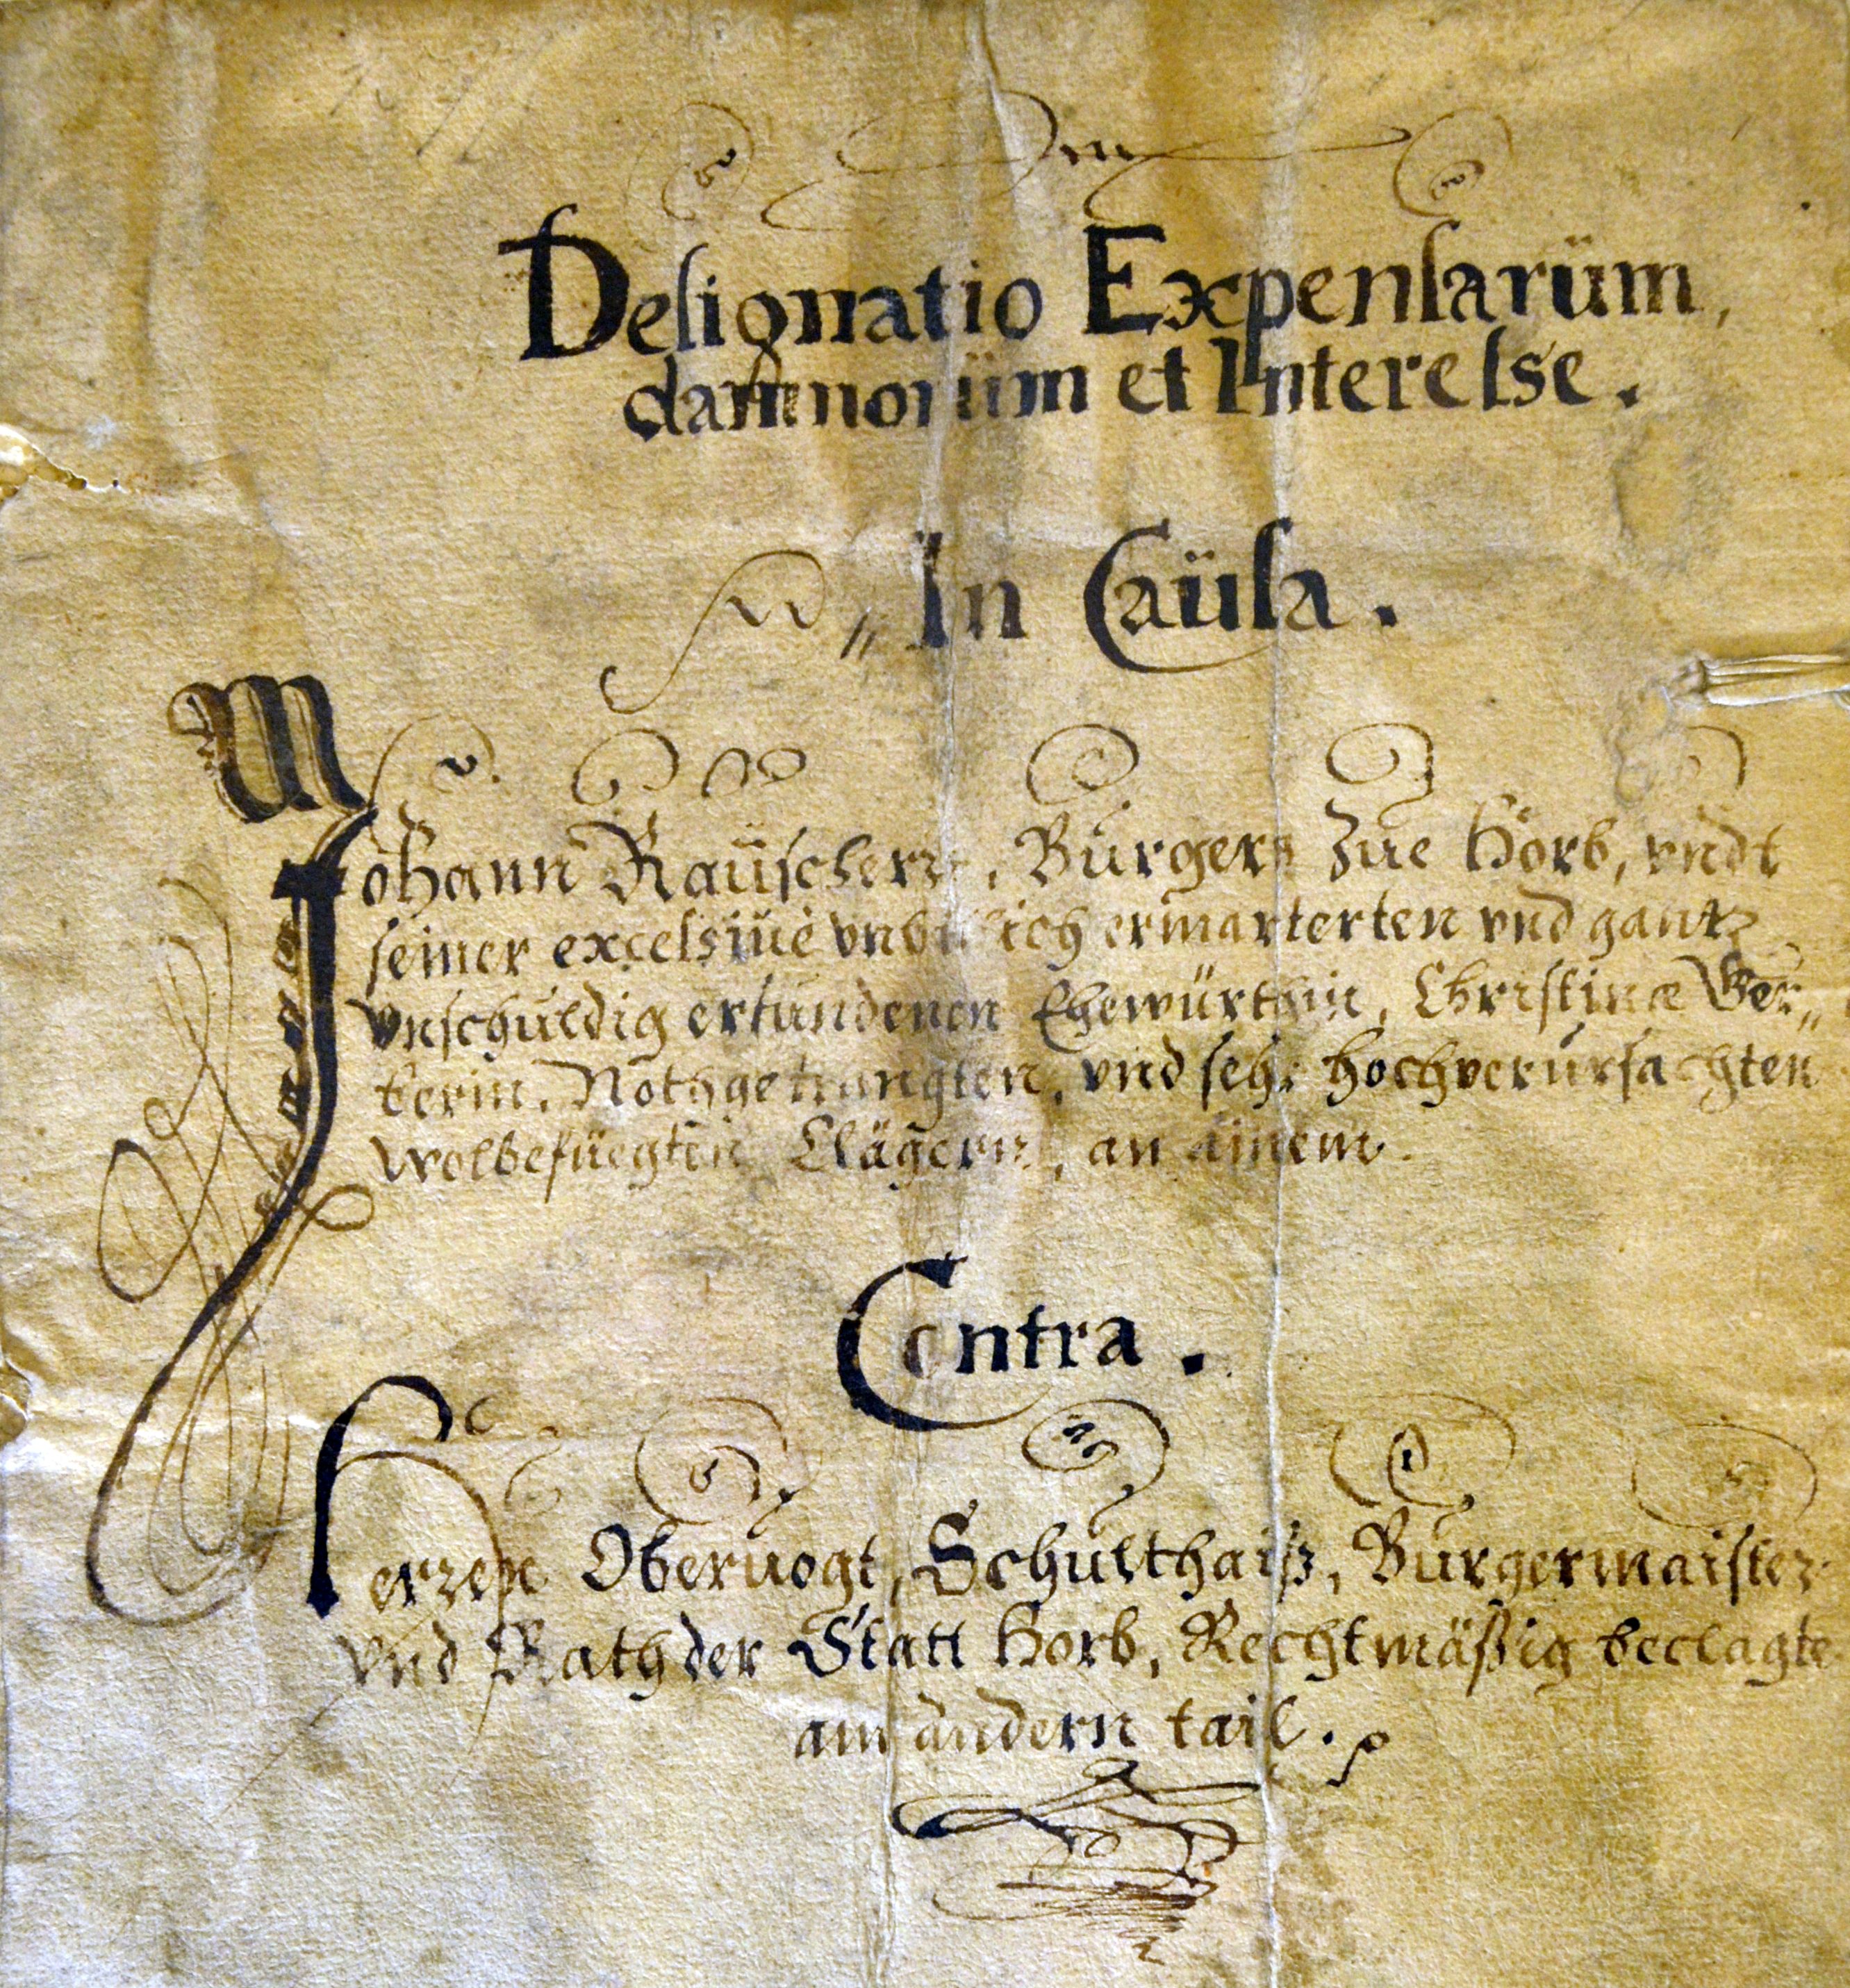 Designatio Expensarüm,
damnorüm et Interesse.
In Caüsa.
Johann Raüschern, Bürgers züe Horb, vndt
seiner excessiüè vnbillich ermarterten vnd gantz
vnschuldig erfundenen Ehewürthin, Christinæ Ver„
berin, Nothgetrungten, vnd sehr hochverursachten
wolbefüegten Clägern, an ainem.
Contra.
Herren Oberuogt, Schulthaiß, Burgermaister
vnd Rath der Statt Horb, Rechtmäßig beclagte
am andern tail.